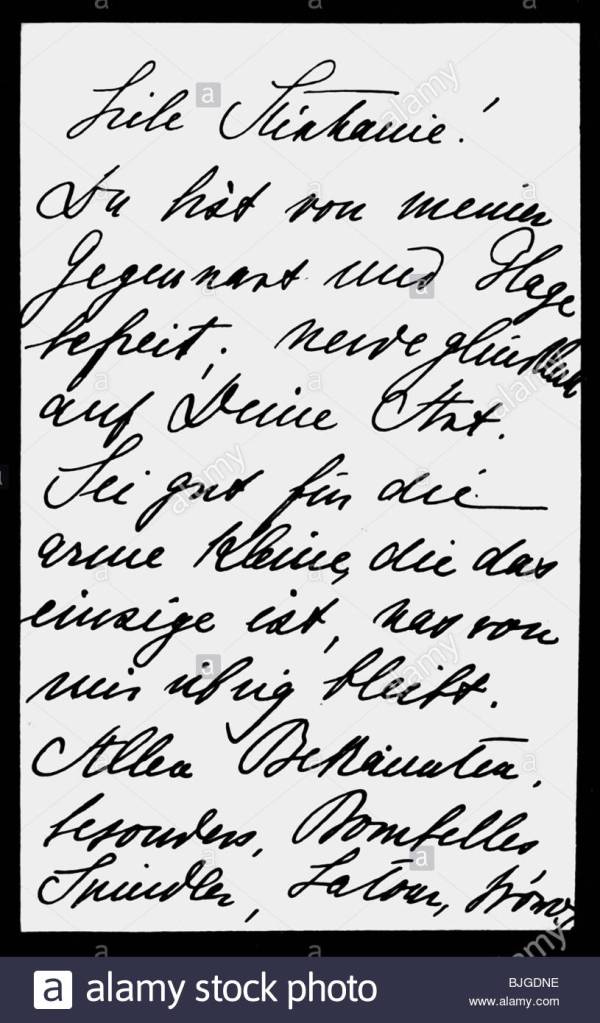 Liebe Stephanie!
Du bist von meiner
Gegenwart und Plage
befreit; werde glücklich
auf Deine Art.
Sei gut für die
arme Kleine, die das
einzige ist, was von
mir übrig bleibt.
Allen Bekannten,
besonders, Bombelles
Spindler, Latour,
alamy stock photo
BJGDNE
www.alamy.com